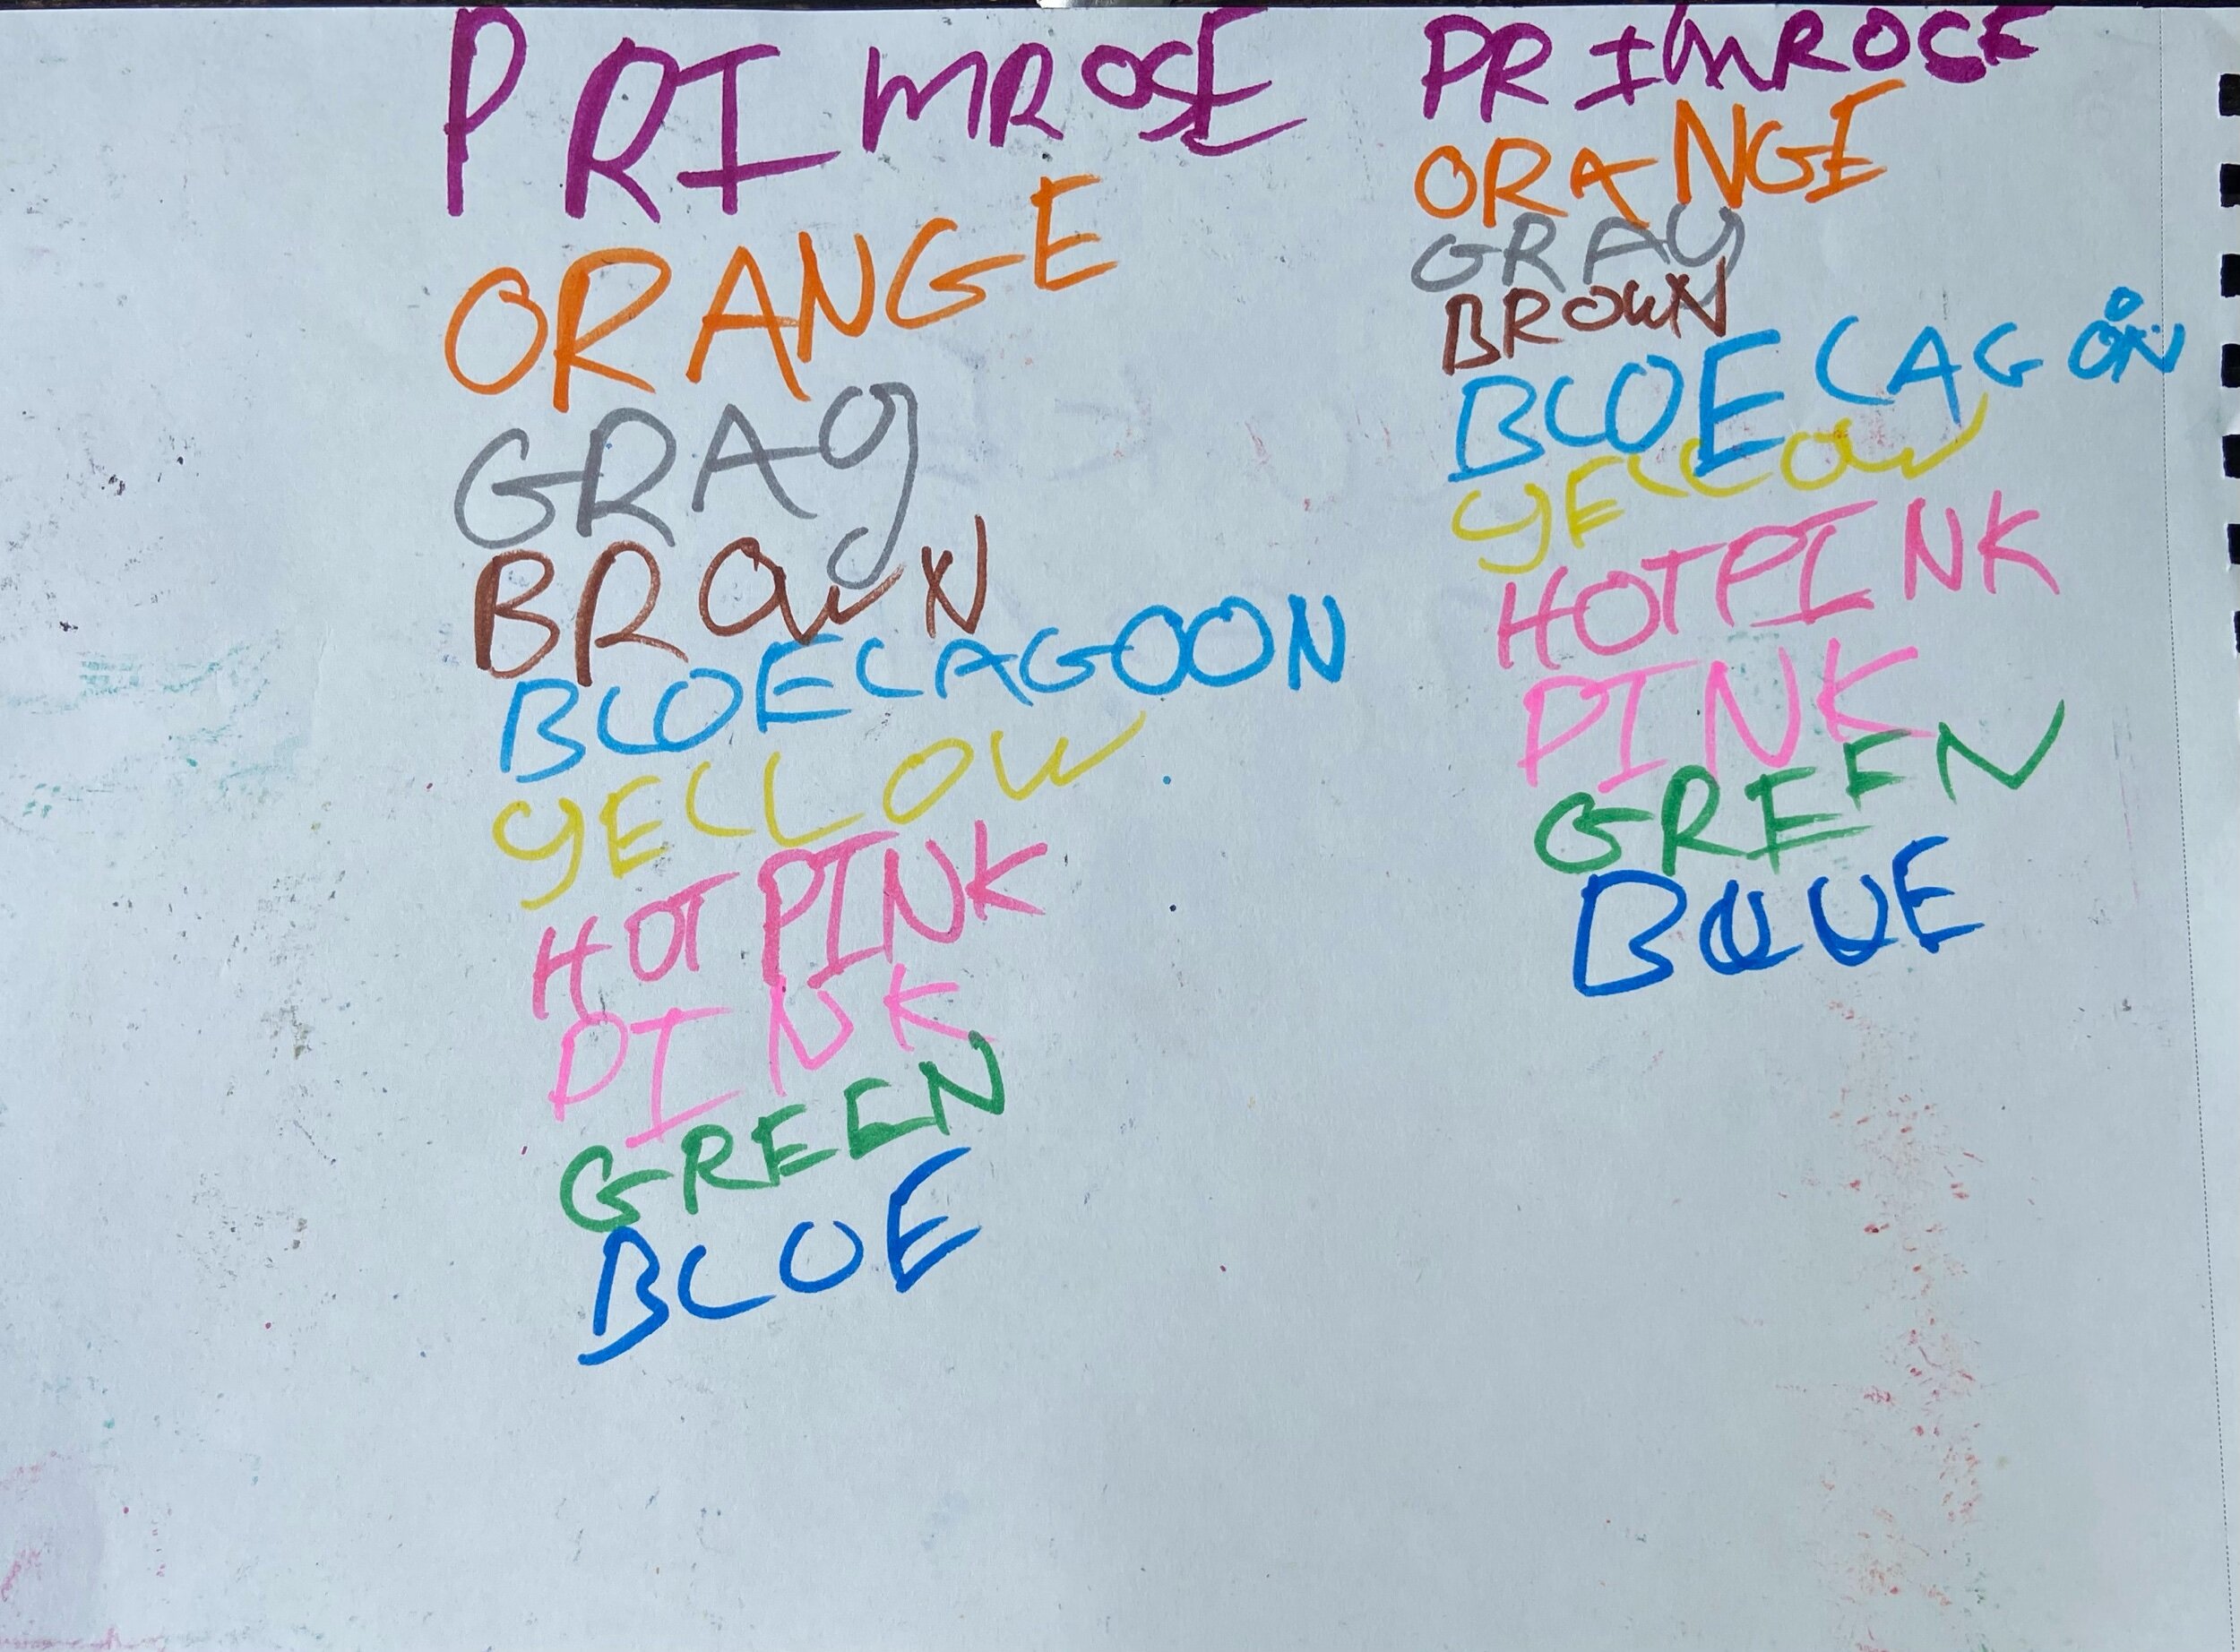 PRIMROSE
ORANGE
GRAY
BROWN
BLUELAGOON
YELLOW
HOT PINK
PINK
GREEN
BLUE
PRIMROSE
ORANGE
GRAY
BROWN
BLUE LAGOON
YELLOW
HOTPINK
PINK
GREEN
BLUE